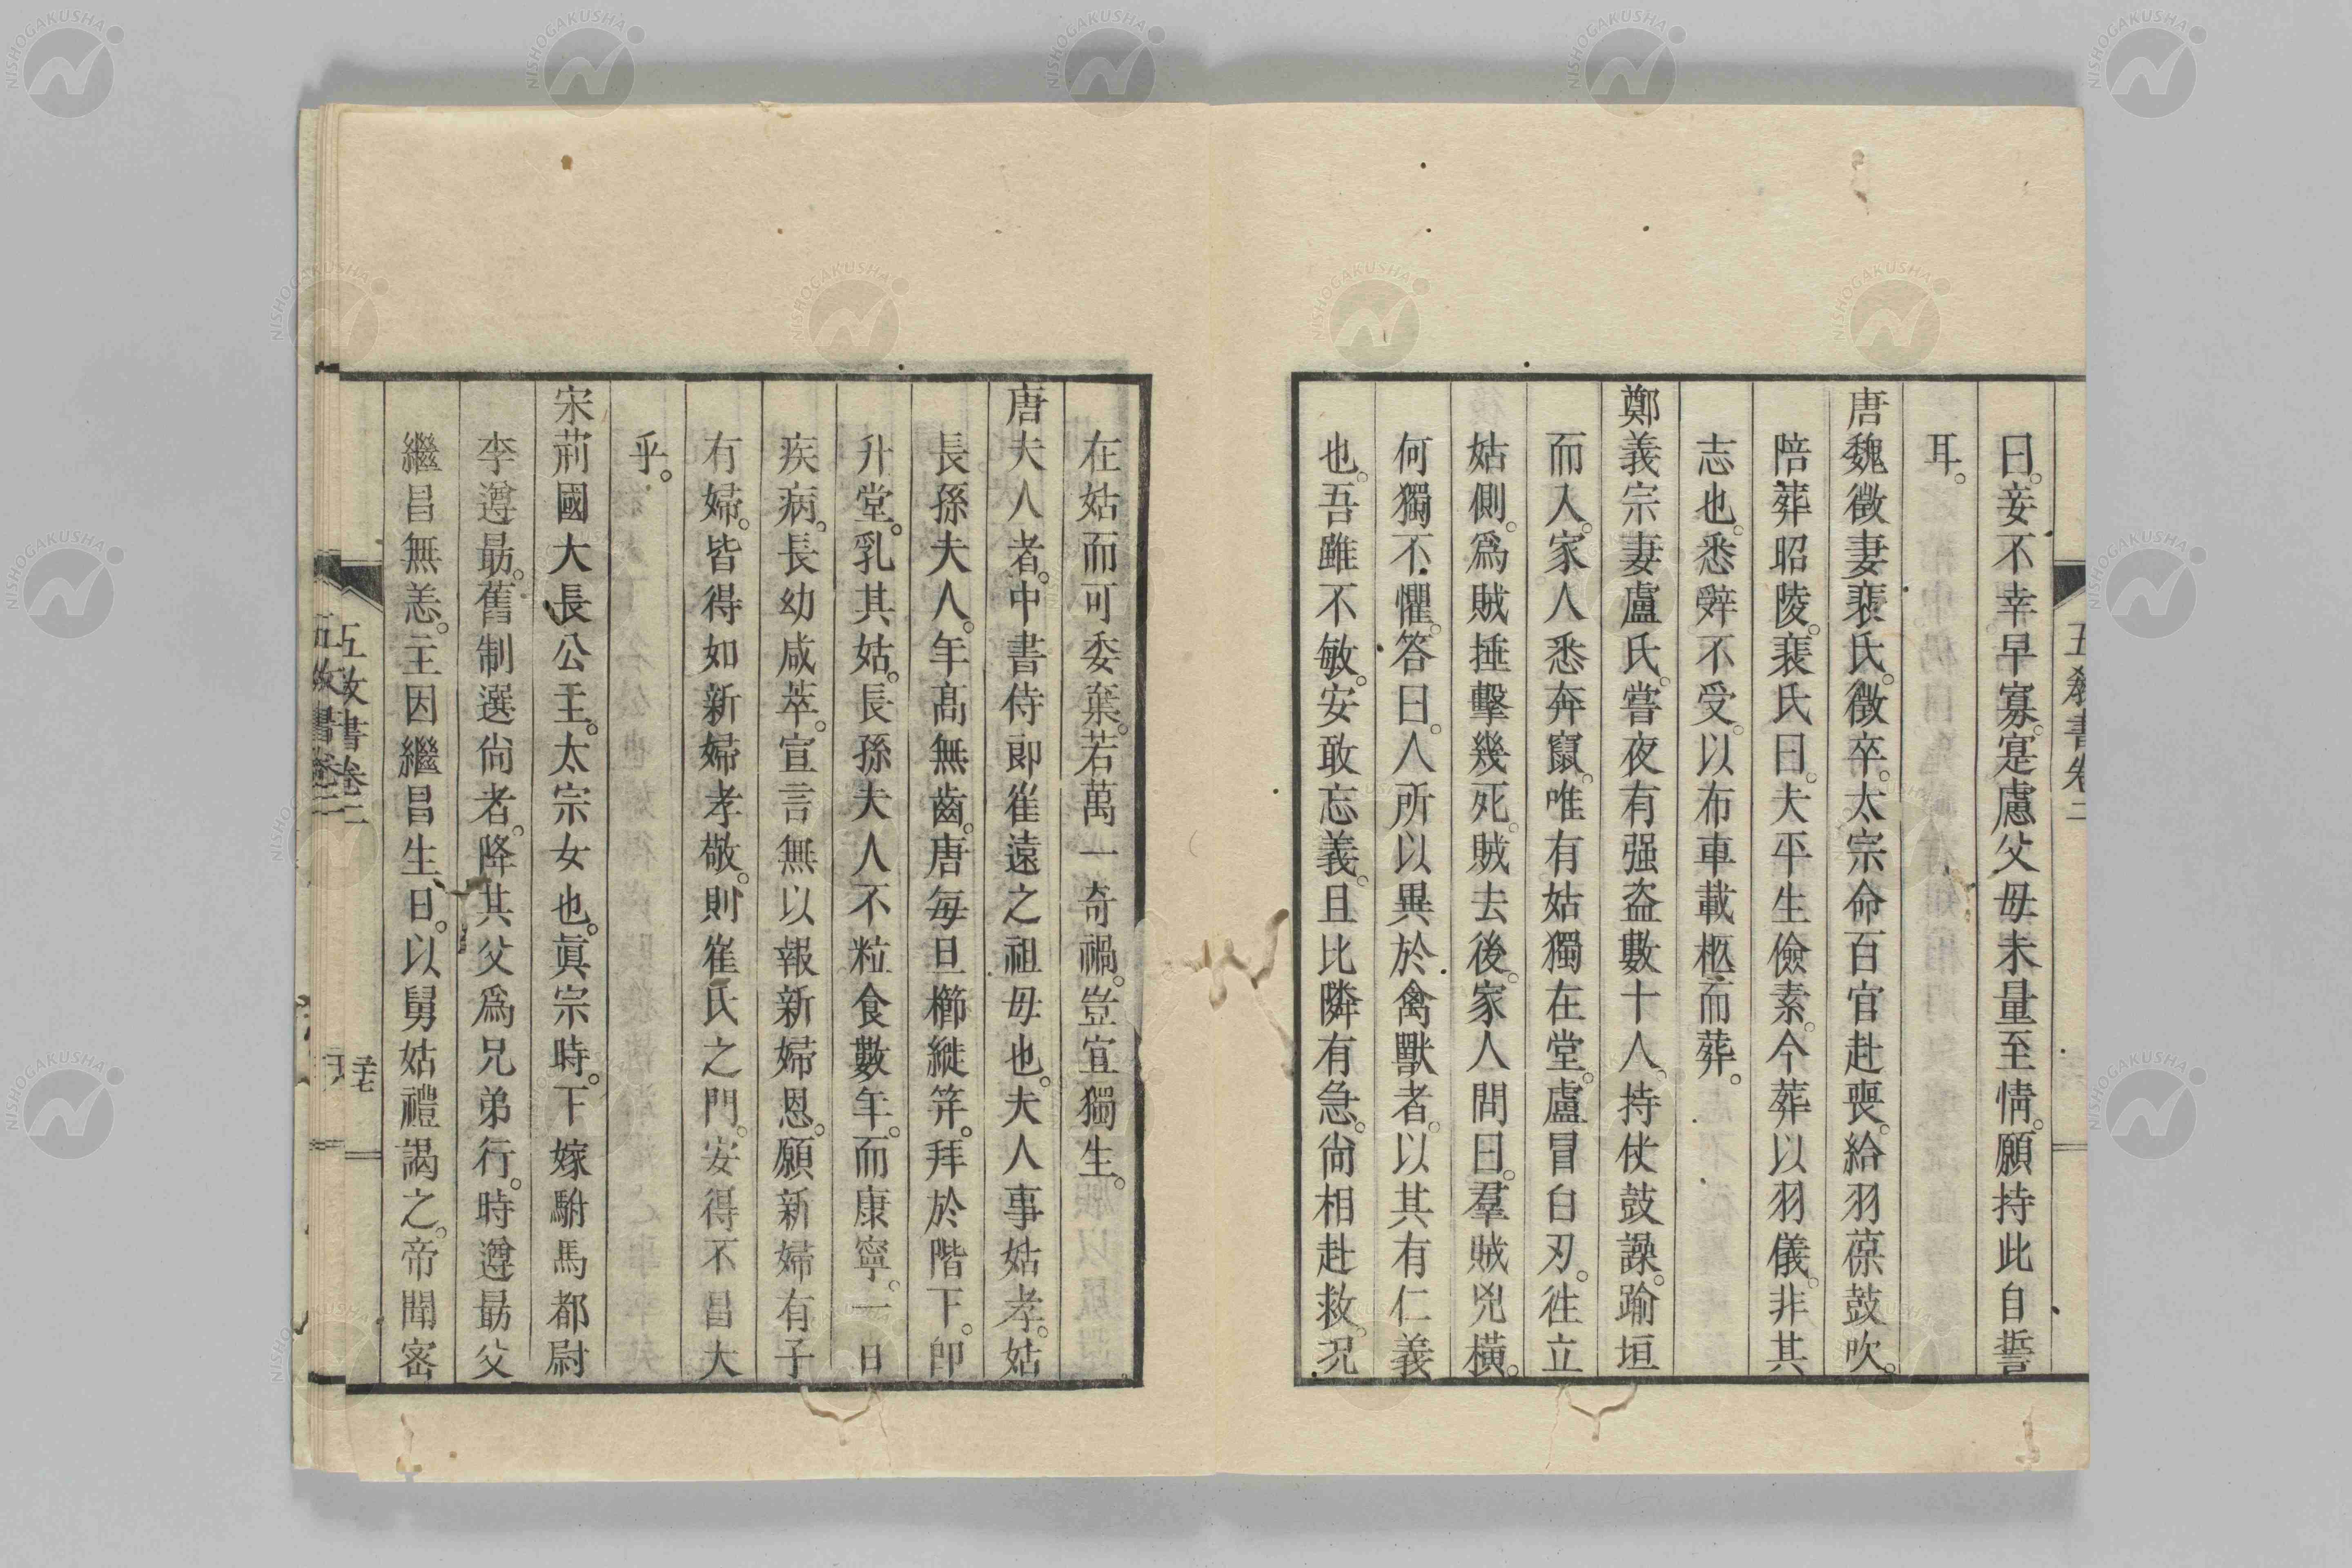 五教書卷二
曰。妾不幸早寡。寔慮父母未量至情。願持此自誓
耳。
唐魏徵妻裴氏。徵卒。太宗命百官赴喪。給羽葆鼓吹。
陪葬昭陵。裴氏曰。夫平生儉素。今葬以羽儀。非其
志也。悉辤不受。以布車載柩而葬。
鄭義宗妻盧氏。嘗夜有强盗數十人。持仗鼓譟。踰垣
而入。家人悉奔竄。唯有姑獨在堂。盧冒白刃。徃立
姑側。爲賊捶擊幾死。賊去後。家人問曰。羣賊兇橫。
何獨不懼。答曰。人所以異於禽獸者。以其有仁義
也。吾雖不敏。安敢忘義。且比隣有急。尙相赴救。況
在姑而可委棄。若萬一奇禍。豈宜獨生。
唐夫人者。中書侍郎崔遠之祖母也。夫人事姑孝。姑
長孫夫人。年髙無齒。唐每旦櫛縰笄。拜於階下。卽
升堂。乳其姑。長孫夫人不粒食數年。而康寧。一日
疾病。長幼咸萃。宣言無以報新婦恩。願新婦有子
有婦。皆得如新婦孝敬。則崔氏之門。安得不昌大
乎。
宋荊國大長公主。太宗女也。眞宗時。下嫁駙馬都尉
李遵勗。舊制選尙者。降其父爲兄弟行。時遵勗父
繼昌無恙。主因繼昌生日。以舅姑禮謁之。帝聞密
五教書卷二
五教書卷二